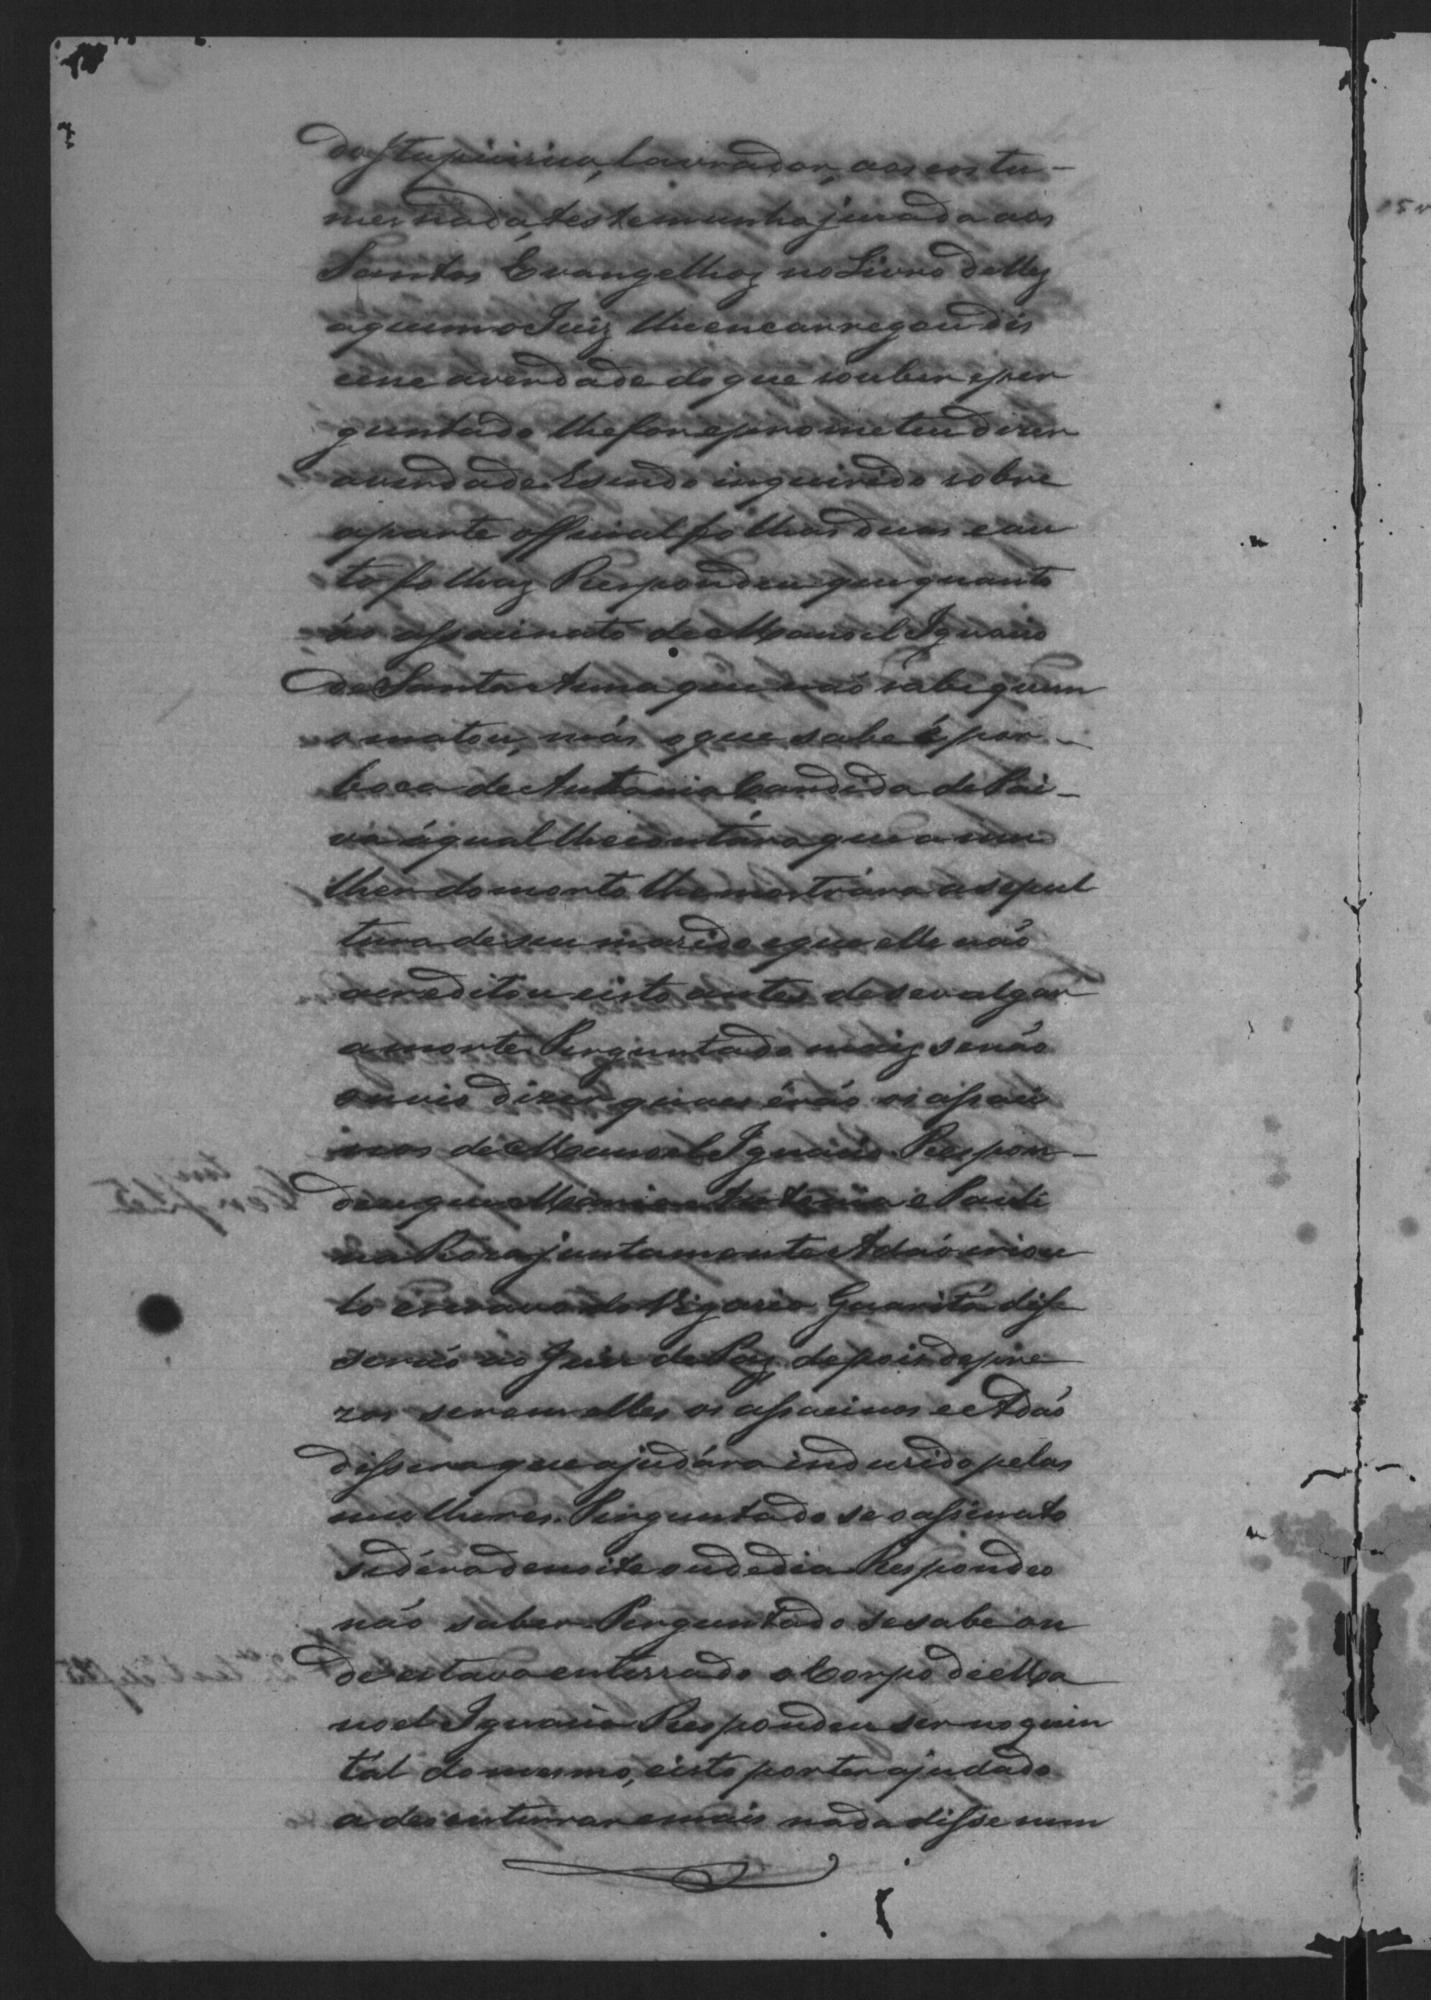 do Itapicirica, lavrador, aos costu-
mes nada testemunha jurada aos
Santos Evangelhos no Livro delles
a quem o Juiz lhe encarregou dis
cece a verdade do que souber e per
guntado lhe for e prometeu dizer
a verdade. E sendo inquirido sobre
a parte official folhas duas e au
to folhas Respondeu que quanto
ao assacinato de Manoel Ignacio
de Santa Anna que não sabe quem
o matou, más o que sabe é por
boca de Antonia Candida de Pai-
va á qual lhe contára que a mu
lher do morto lhe mostrára a sepul
tura de seu marido e que elle não
acreditou e isto antes de se valgar
a morte. Perguntado mais se não
ouvio dizer quaes erão os assaci
nos de Manoel Ignacio. Respon-
deu que Maria e Pauli
na Roza juntamente Adão criou
lo escravo do Vigario Guaritá diss
serão ao Juiz de Paz depois de pre
zos serem elles os assacinos e Adão
dissera que ajudára induzido pelas
mulheres. Perguntado se o assinato
se déra de noite ou de dia Respondeo
não saber. Perguntado se sabe on
de estava enterrado o Corpo de Ma
noel Ignacio Respondeu ser no quin
tal do mesmo, e isto por ter ajudado
a desenterrar e mais nada disse nem